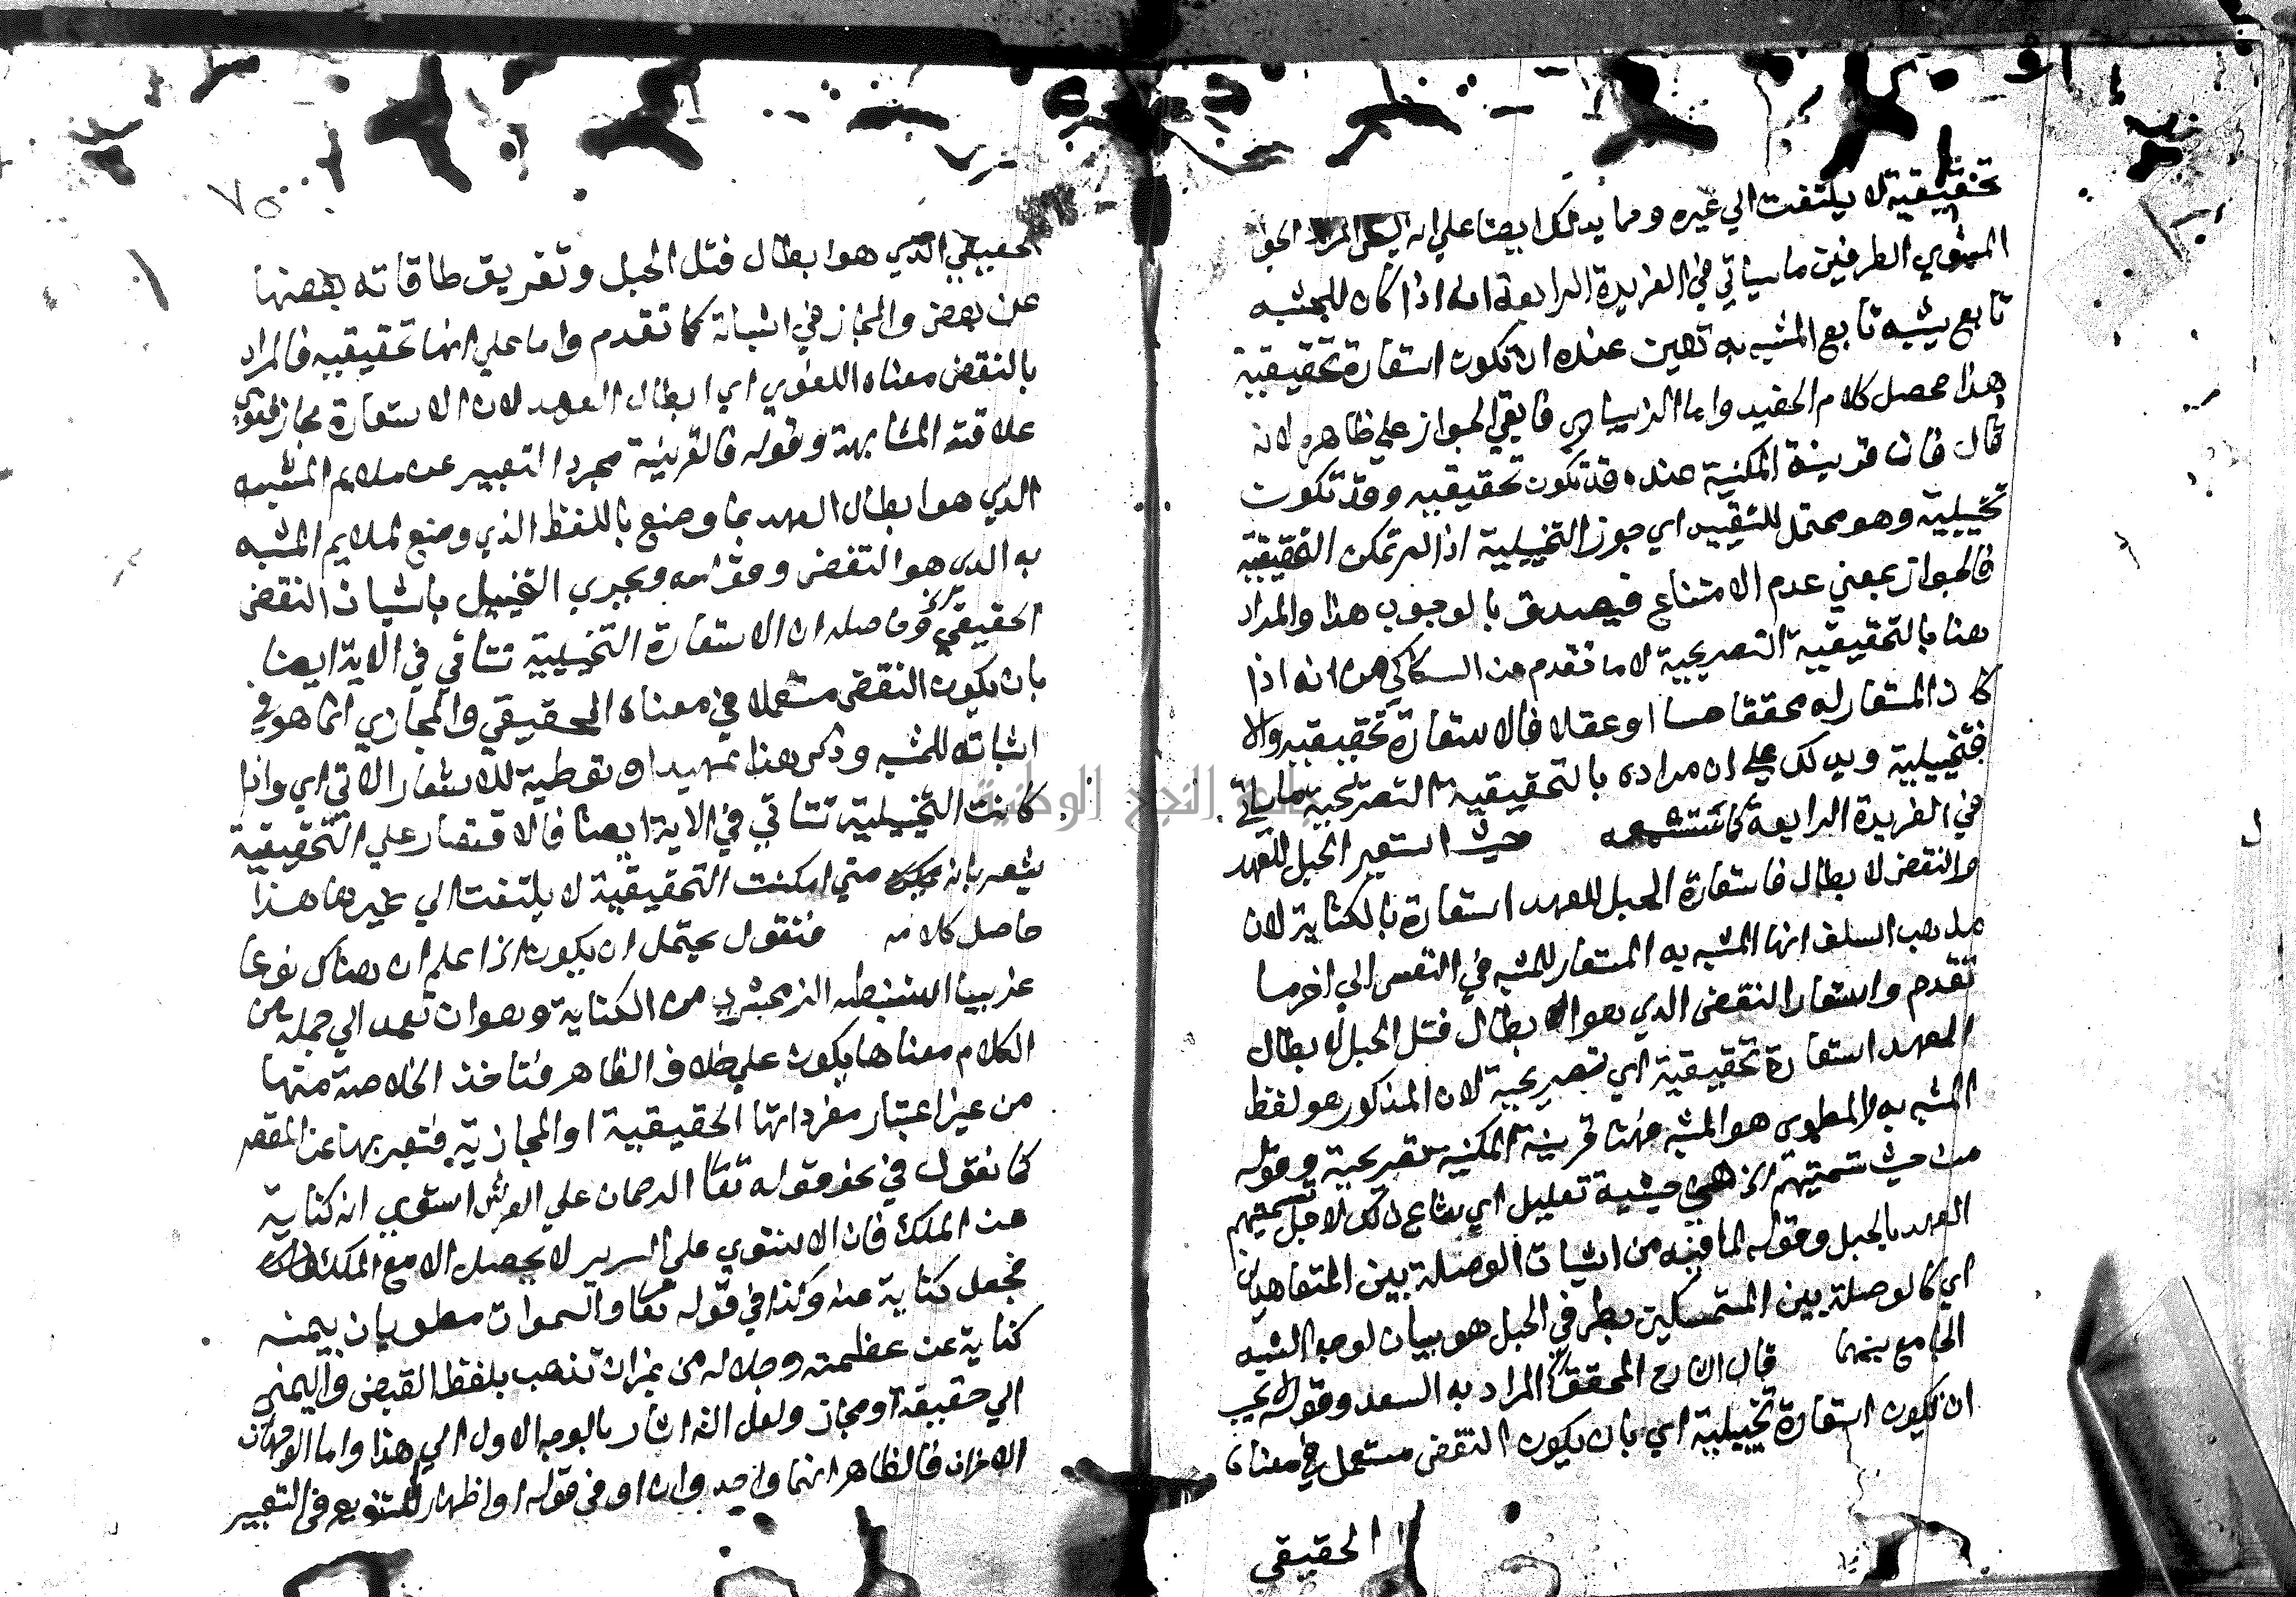 تحقيقية لا يلتفت الي غيره ومما يدلك ايضا علي انه ليس المراد الجواز
المستوي الطرفين ما سياتي في الفريدة الرابعة انه اذا كان للمشبه
تابع يشبه تابع المشبه به تعين عنده ان تكون استعارة تحقيقية
هذا محصل كلام الحفيد واما الزيباري فابقي الجواز علي ظاهره لانه
قال فان قرينة المكنية عنده قد تكون تحقيقيه وقد تكون
تخييلية وهو محتمل للتقييد اي جوز التخييلية اذا لم تمكن التحقيقية
فالجواز بمعني عدم الامتناع فيصدق بالوجوب هذا والمراد
هنا بالتحقيقية التصريحية لا ما تقدم عن السكاكي من انه اذا
كان المستعار له محققا حسا او عقلا فالاستعارة تحقيقيه والا
فتخييلية ويدلك علي ان مراده بالتحقيقية التصريحية ما ياتي
في الفريدة الرابعة كما ستسمعه حيث استعير الحبل للعهد
والنقض لابطال فاستعارة الحبل للعهد استعارة بالكناية لان
مذهب السلف انها المشبه به المستعار للمشبه في النفس الي اخر ما
تقدم واستعار النقض الذي هو ابطال فتل الحبل لابطال
العهد استعارة تحقيقية اي تصريحية لان المذكور هو لفظ
المشبه به والمطوي هو المشبه فهنا قرينة المكنية تصريحية وقوله
من حيث تسميتهم الخ هي حيثية تعليل اي شاع ذلك لاجل تسميتهم
العهد بالحبل وقوله لما فيه من اثبات الوصلة بين المتعاهدين
اي كالوصلة بين المتمسكين بطرفي الحبل هو بيان لوجه الشبه
الجامع بينهما قال الشارح المحقق المراد به السعد وقوله لا يجب
ان تكون استعارة تخييلية اي بان يكون النقض مستعمل في معناه
الحقيقي
٧٥
الحقيقي الذي هو ابطال فتل الحبل وتفريق طاقاته بعضها
عن بعض والمجاز في اثباته كما تقدم واما علي انها تحقيقيه فالمراد
بالنقض معناه اللغوي اي ابطال العهد لان الاستعارة مجاز لغوي
علاقته المشابهة وقوله فالقرينة مجرد التعبير عن ملايم المشبه
الذي هو ابطال العهد بما وضع باللفظ الذي وضع لملايم المشبه
به الذي هو النقض وقوله ويجري التخييل باثبات النقض
الحقيقي وحاصله ان الاستعارة التخييلية تتاتي في الاية ايضا
بان يكون النقض مستعملا في معناه الحقيقي والمجازي انما هو في
اثباته للمشبه وذكر هذا تمهيدا وتوطية للاشعار الاتي اي واذا
كانت التخييلية تتاتي في الاية ايضا فالاقتصار علي التحقيقية
يشعر بانه متي امكنت التحقيقية لا يلتفت الي غيرها هذا
حاصل كلامه فنقول يحتمل ان يكون الخ اعلم ان هناك نوعا
غريبا استنبطه الزمخشري من الكناية وهو ان تعمد الي جملة من
الكلام معناها يكون علي خلاف الظاهر فتاخذ الخلاصة منها
من غير اعتبار مفرداتها الحقيقية او المجازية فتعبر بها عن المقصد
كما نقول في نحو قوله تعا الرحمان علي العرش استوي انه كناية
عن الملك فان الاستوي علي السرير لا يحصل الا مع الملك
فجعل كناية عنه وكذا في قوله تعا والسموات مطويات بيمنه
كناية عن عظمته وجلاله من غير ان تذهب بلفظ القبض واليمني
الي حقيقة او مجاز ولعل الش اشار بالوجه الاول الي هذا واما الوجهان
الاخران فالظاهر انهما واحد وان او في قوله او اظهار للتنويع في التعبير